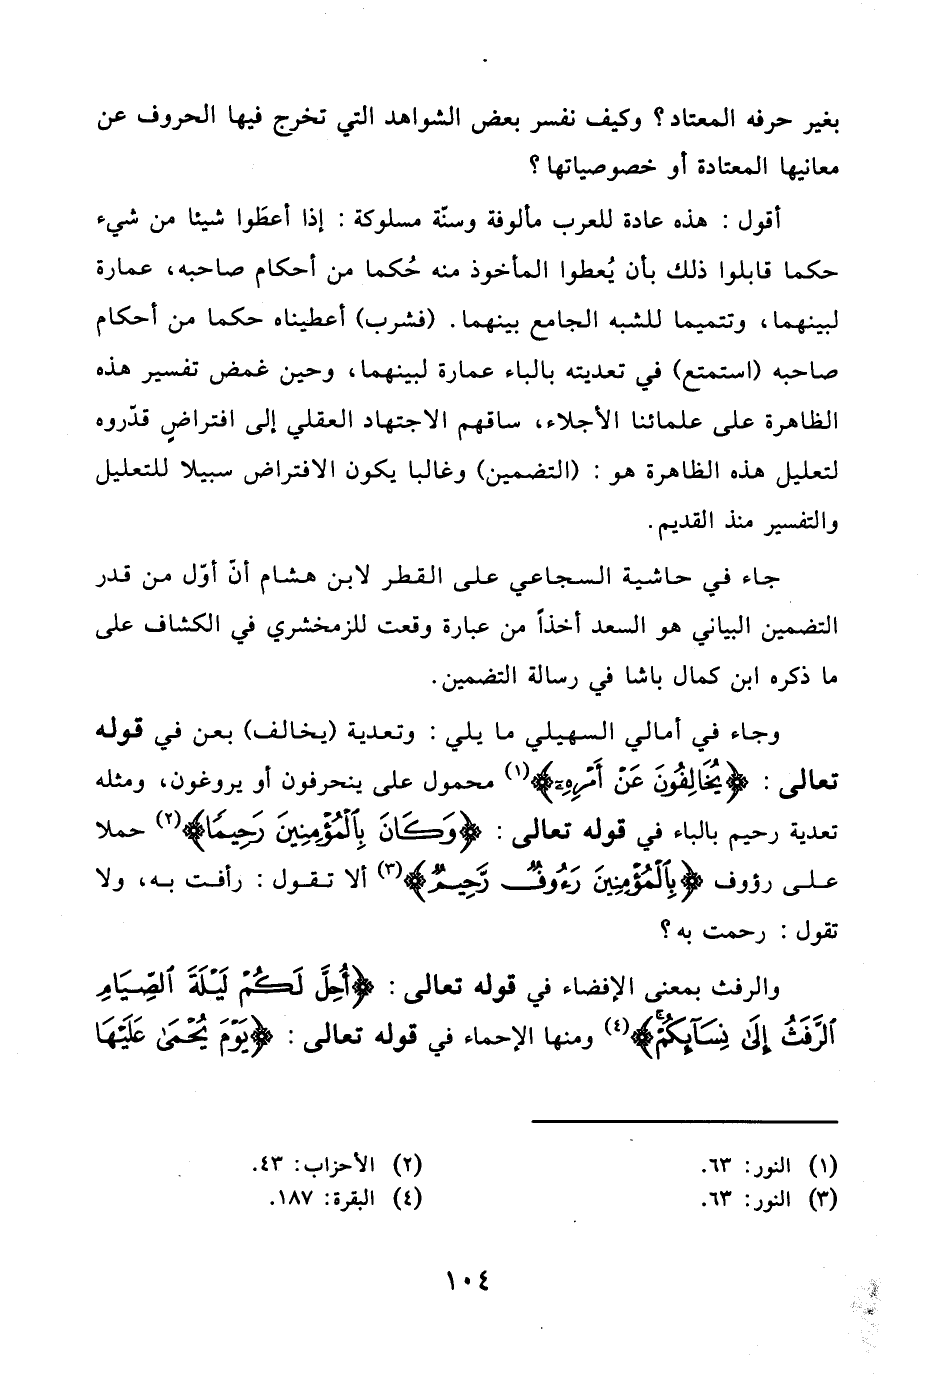 بغير حرفه المعتاد؟ وكيف نفسر بعض الشواهد التي تخرج فيها الحروف عن
معانيها المعتادة أو خصوصياتها؟
أقول : هذه عادة للعرب مألوفة وسنّة مسلوكة : إذا أعطَوا شيئا من شيء
حكما قابلوا ذلك بأن يُعطوا المأخوذ منه حُكما من أحكام صاحبه، عمارة
لبينهما، وتتميما للشبه الجامع بينهما. (فشرب) أعطيناه حكما من أحكام
صاحبه (استمتع) في تعديته بالباء عمارة لبينهما، وحين غمض تفسير هذه
الظاهرة على علمائنا الأجلاء، ساقهم الاجتهاد العقلي إلى افتراضٍ قدّروه
لتعليل هذه الظاهرة هو : (التضمين) وغالبا يكون الافتراض سبيلا للتعليل
والتفسير منذ القديم.
جاء في حاشية السجاعي على القطر لابن هشام أنّ أوّل من قدر
التضمين البياني هو السعد أخذاً من عبارة وقعت للزمخشري في الكشاف على
ما ذكره ابن كمال باشا في رسالة التضمين.
وجاء في أمالي السهيلي ما يلي : وتعدية (يخالف) بعن في قوله
تعالى : ﴿يُخَالِفُونَ عَنْ أَمْرِهِۦٓ﴾(١) محمول على ينحرفون أو يروغون، ومثله
تعدية رحيم بالباء في قوله تعالى : ﴿وَكَانَ بِٱلْمُؤْمِنِينَ رَحِيمًا﴾(٢) حملا
على رؤوف ﴿بِٱلْمُؤْمِنِينَ رَءُوفٌ رَّحِيمٌ﴾(٣) ألا تقول : رأفت به، ولا
تقول : رحمت به؟
والرفث بمعنى الإفضاء في قوله تعالى : ﴿أُحِلَّ لَكُمْ لَيْلَةَ ٱلصِّيَامِ
ٱلرَّفَثُ إِلَىٰ نِسَآئِكُمْ﴾(٤) ومنها الإحماء في قوله تعالى : ﴿يَوْمَ يُحْمَىٰ عَلَيْهَا
(١) النور: ٦٣. (٢) الأحزاب: ٤٣.
(٣) النور: ٦٣. (٤) البقرة: ١٨٧.
١٠٤